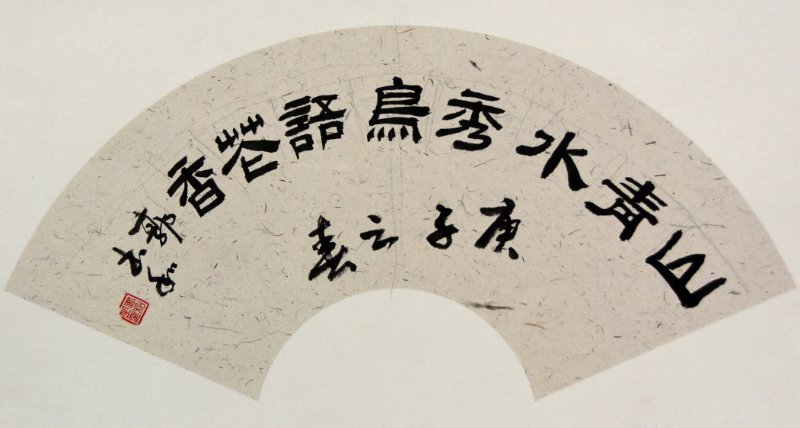 山青水秀鳥語花香
庚子之春
郭
书